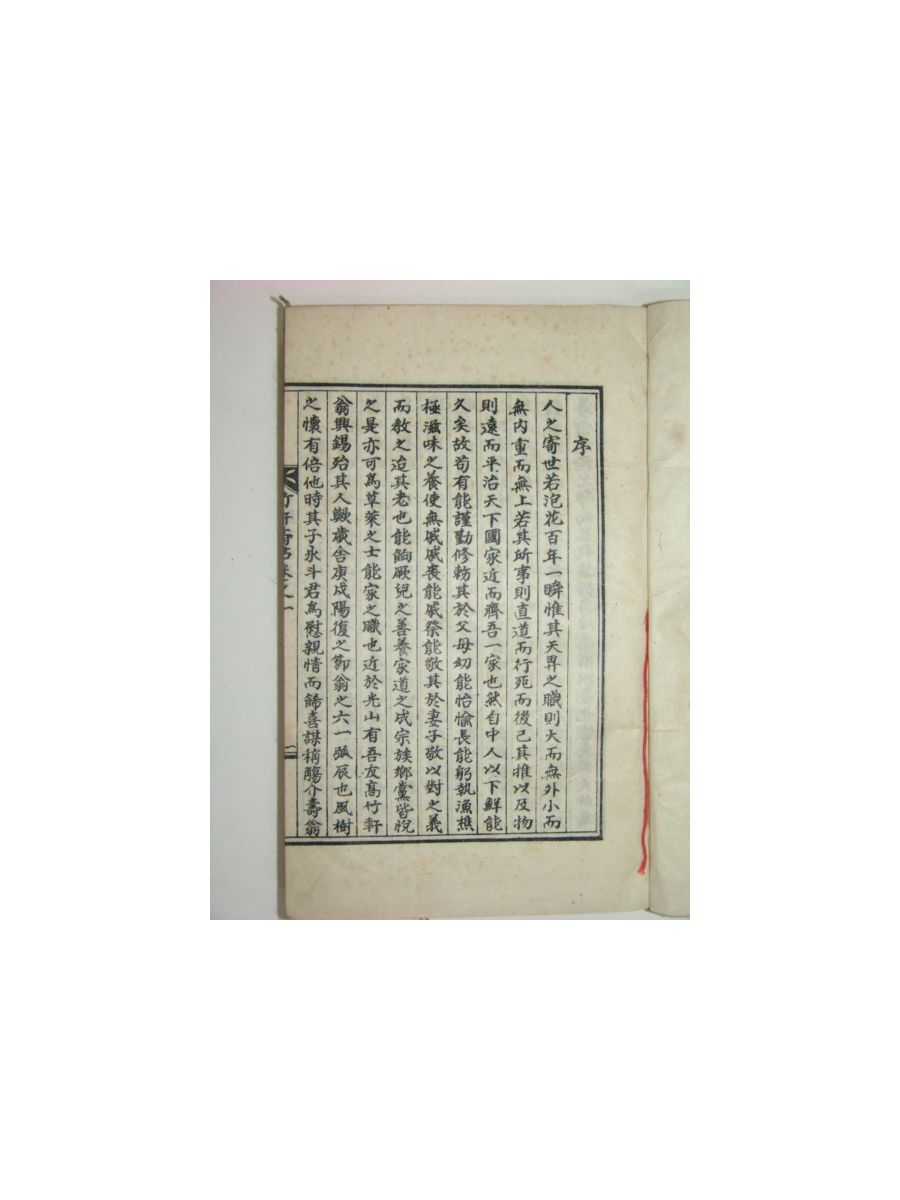 序
人之寄世若泡花百年一瞬惟其天畀之職則大而無外小而
無內重而無上若其所事則直道而行死而後已其推以及物
則遠而平治天下國家近而齊吾一家也然自中人以下鮮能
久矣故苟有能謹修勑其於父母幼能怡愉長能躬執漁樵
極滋味之養使無戚戚喪能戚祭能敬其於妻子敬以對之義
而教之迨其老也能餉厥兒之善養家道之成宗族鄉黨皆悅
之是亦可爲草萊之士能家之職也近於光山有吾友高竹軒
翁興錫殆其人歟歲舍庚戌陽復之節翁之六一弧辰也風樹
之懷有倍他時其子永斗君爲慰親情而餙喜謀稱觴介壽翁
卷之一